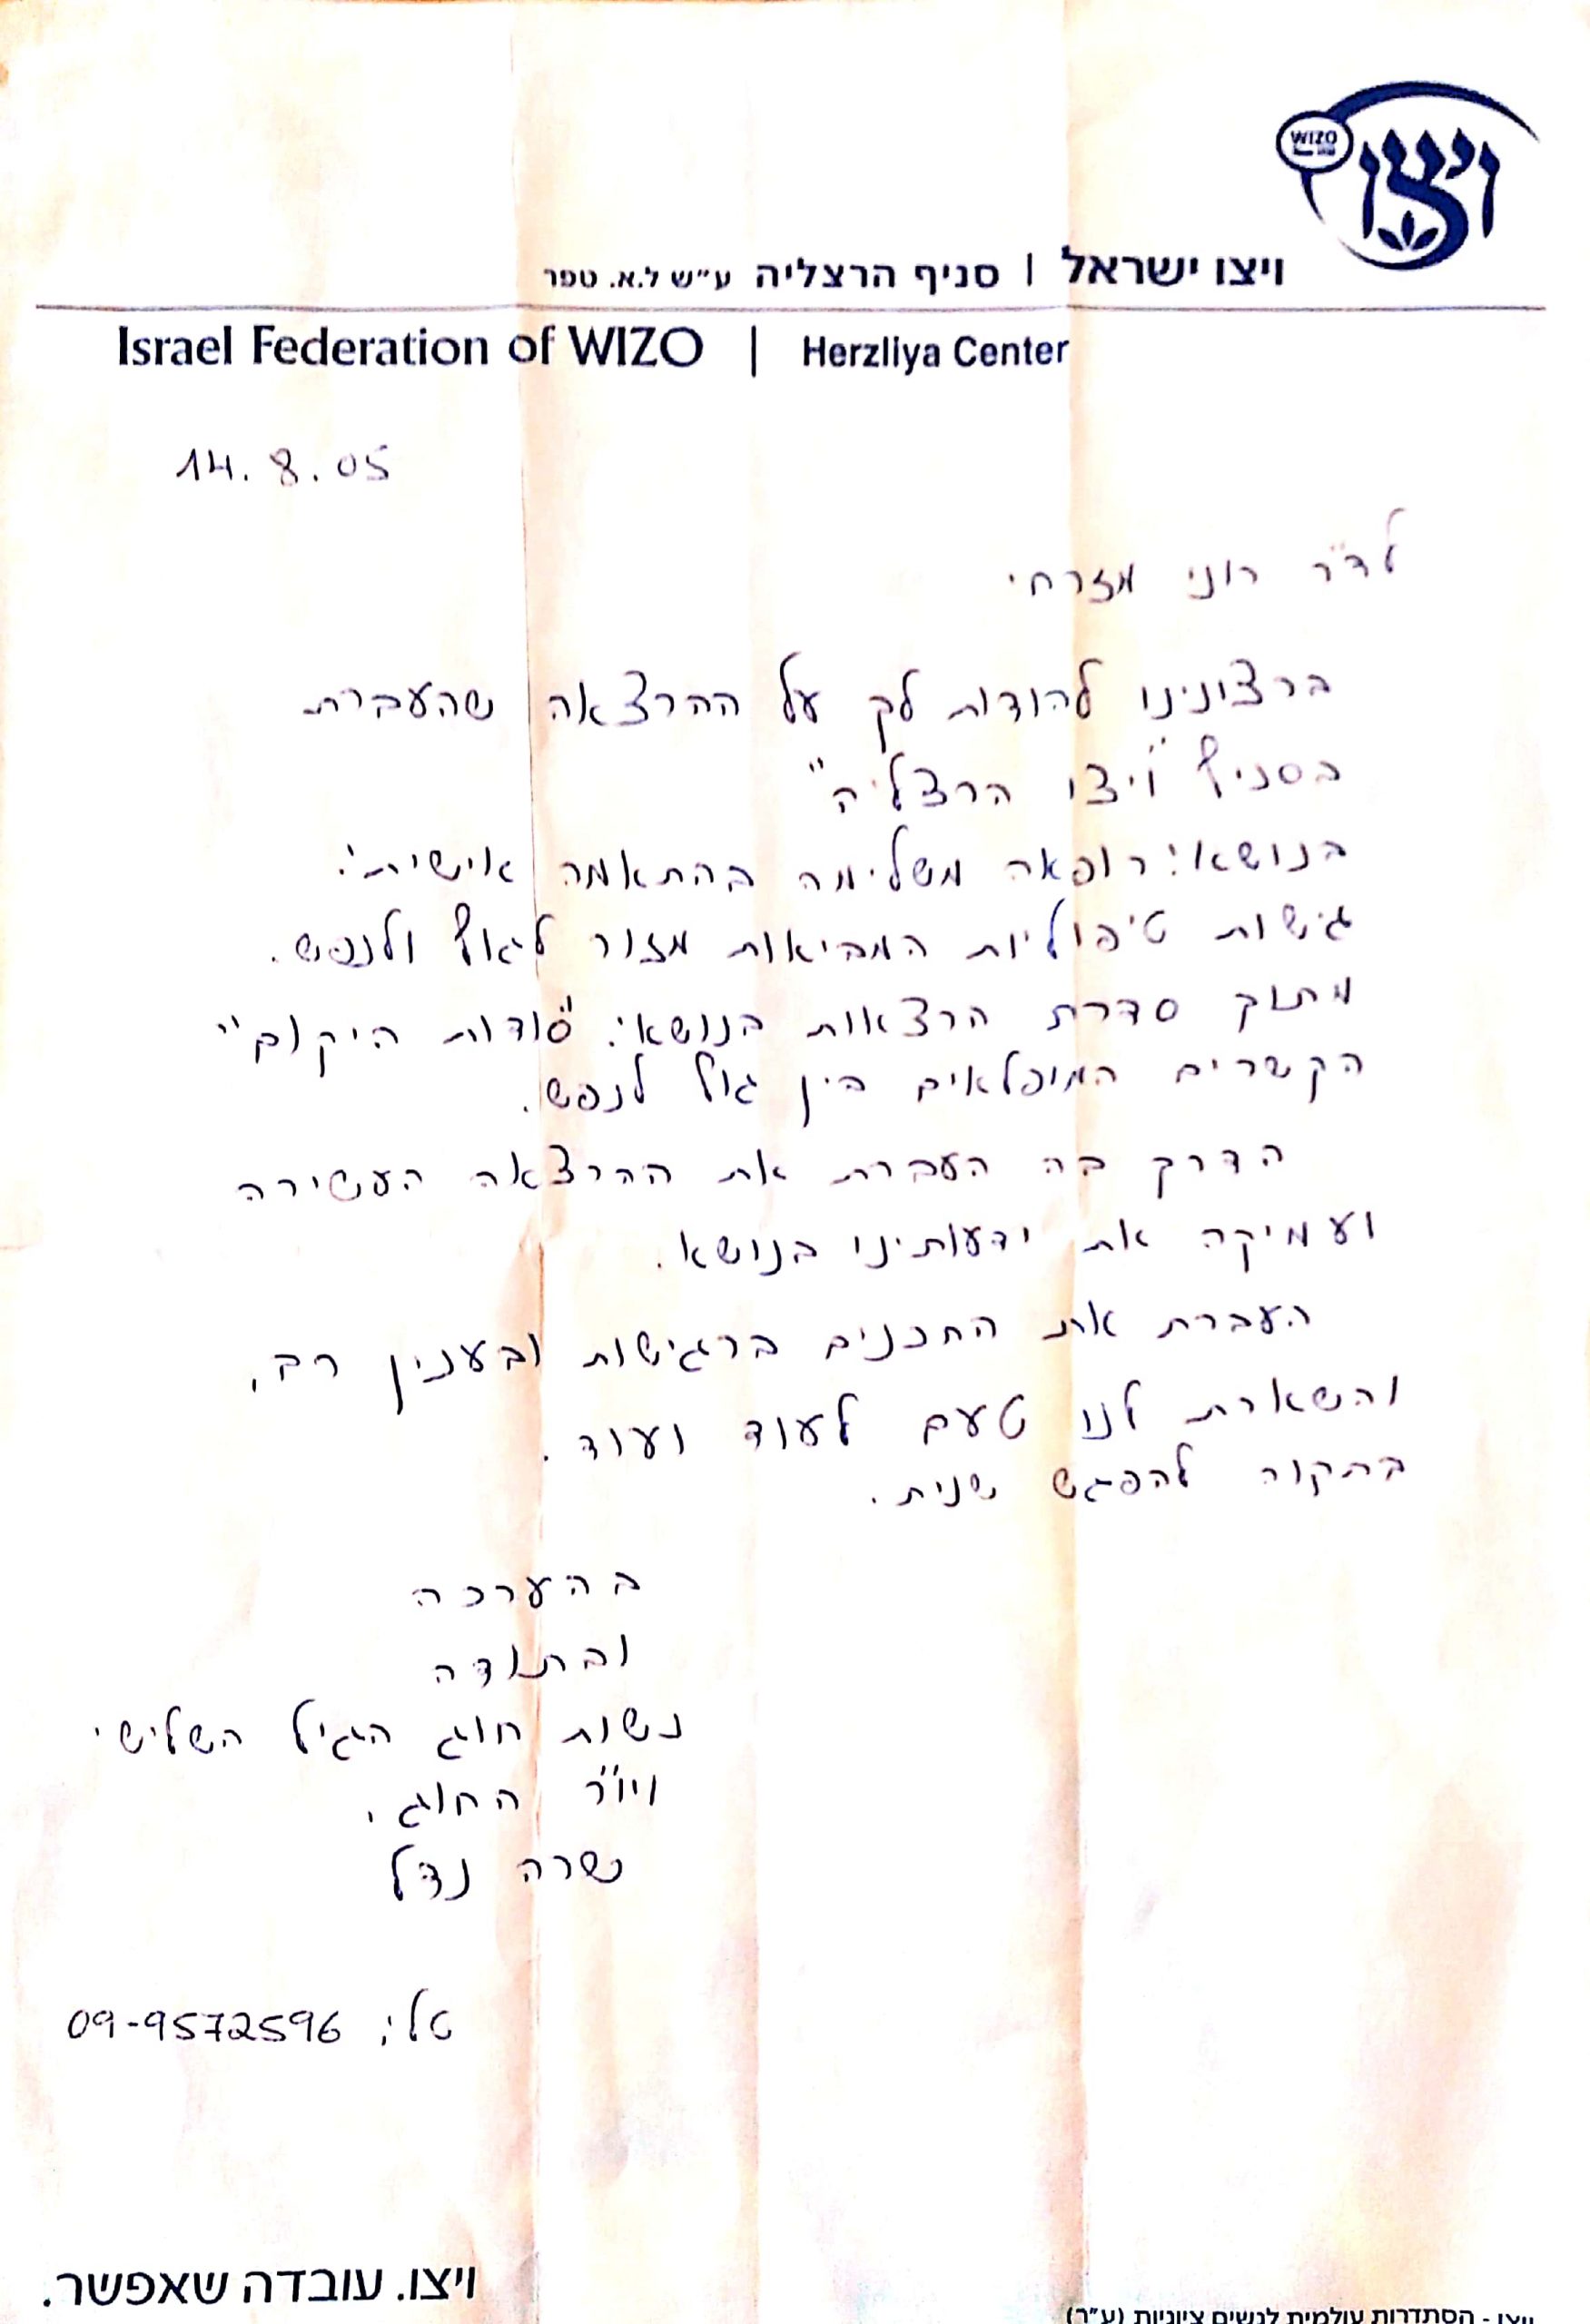 ויצו
WIZO
ויצו ישראל | סניף הרצליה ע״ש ל.א. טפר
Israel Federation of WIZO | Herzliya Center
14.8.05
לד"ר רוני מזרחי
ברצונינו להודות לך על ההרצאה שהעברת
בסניף "ויצו הרצליה"
בנושא: רופאה משלימה בהתאמה אישית:
גישות טיפוליות המביאות מזור לגוף ולנפש.
מתוך סדרת הרצאות בנושא: "סודות היקום"
הקשרים המופלאים בין גוף לנפש.
הדרך בה העברת את ההרצאה העשירה
ועמיקה את ידעותינו בנושא.
העברת את התכנים ברגישות ובענין רב,
והשארת לנו טעם לעוד ועוד.
בתקוה להפגש שנית.
בהערכה
ובתודה
נשות חוג הגיל השלישי
ויו"ר החוג,
שרה נדל
טל: 09-9572596
ויצו. עובדה שאפשר.
ויצו - הסתדרות עולמית לנשים ציוניות (ע"ר)